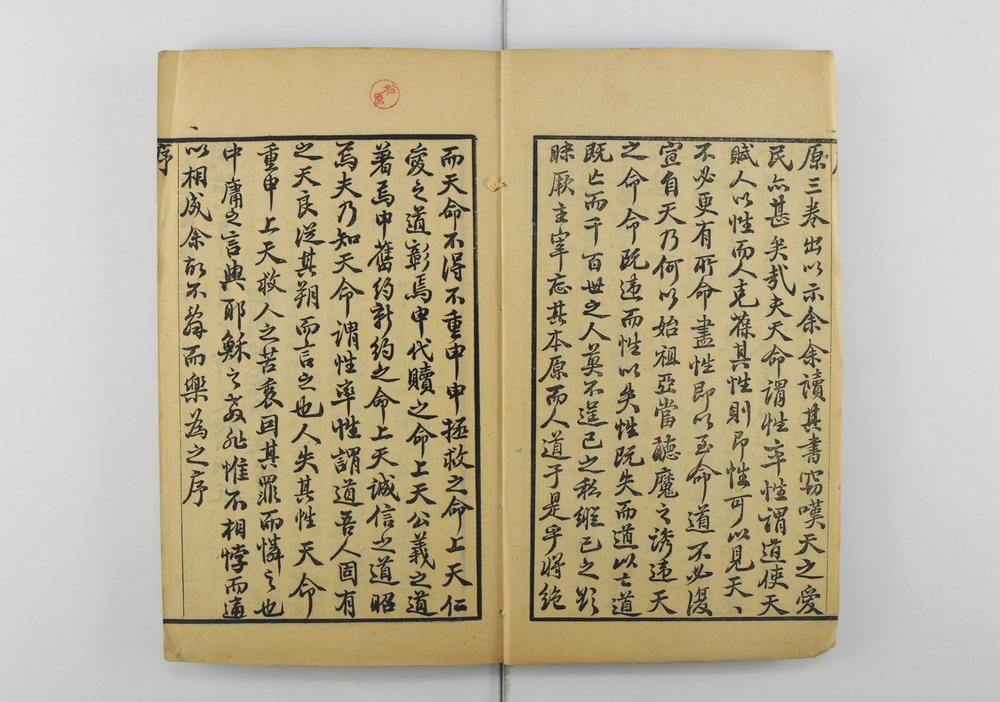 原三卷出以示余余讀其書竊嘆天之愛
民亦甚矣哉夫天命謂性率性謂道使天
賦人以性而人克葆其性則即性可以見天、
不必更有所命盡性即以至命道不必復
宣自天乃何以始祖亞當聽魔之誘違天
之命命既違而性以失性既失而道以亡道
既亡而千百世之人莫不逞己之私縱己之欲
昧厥主宰忘其本原而人道于是乎將絶
而天命不得不重申申拯救之命上天仁
愛之道彰焉申代贖之命上天公義之道
著焉申舊約新約之命上天誠信之道昭
焉夫乃知天命謂性率性謂道吾人固有
之天良從其朔而言之也人失其性天命
重申上天救人之苦衷因其罪而憐之也
中庸之言與耶穌之教非惟不相悖而適
以相成余故不辭而樂為之序
序
松原